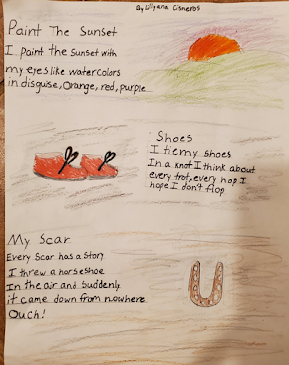 By Lilyana Cisneros
Paint The Sunset
I paint the Sunset with
my eyes like watercolors
in disguise, Orange, red, purple
Shoes
I tie my shoes
In a knot I think about
every trot, every hop I
hope I don't flop
My Scar
Every Scar has a story
I threw a horseshoe
In the air and suddenly
it came down from nowhere
Ouch!